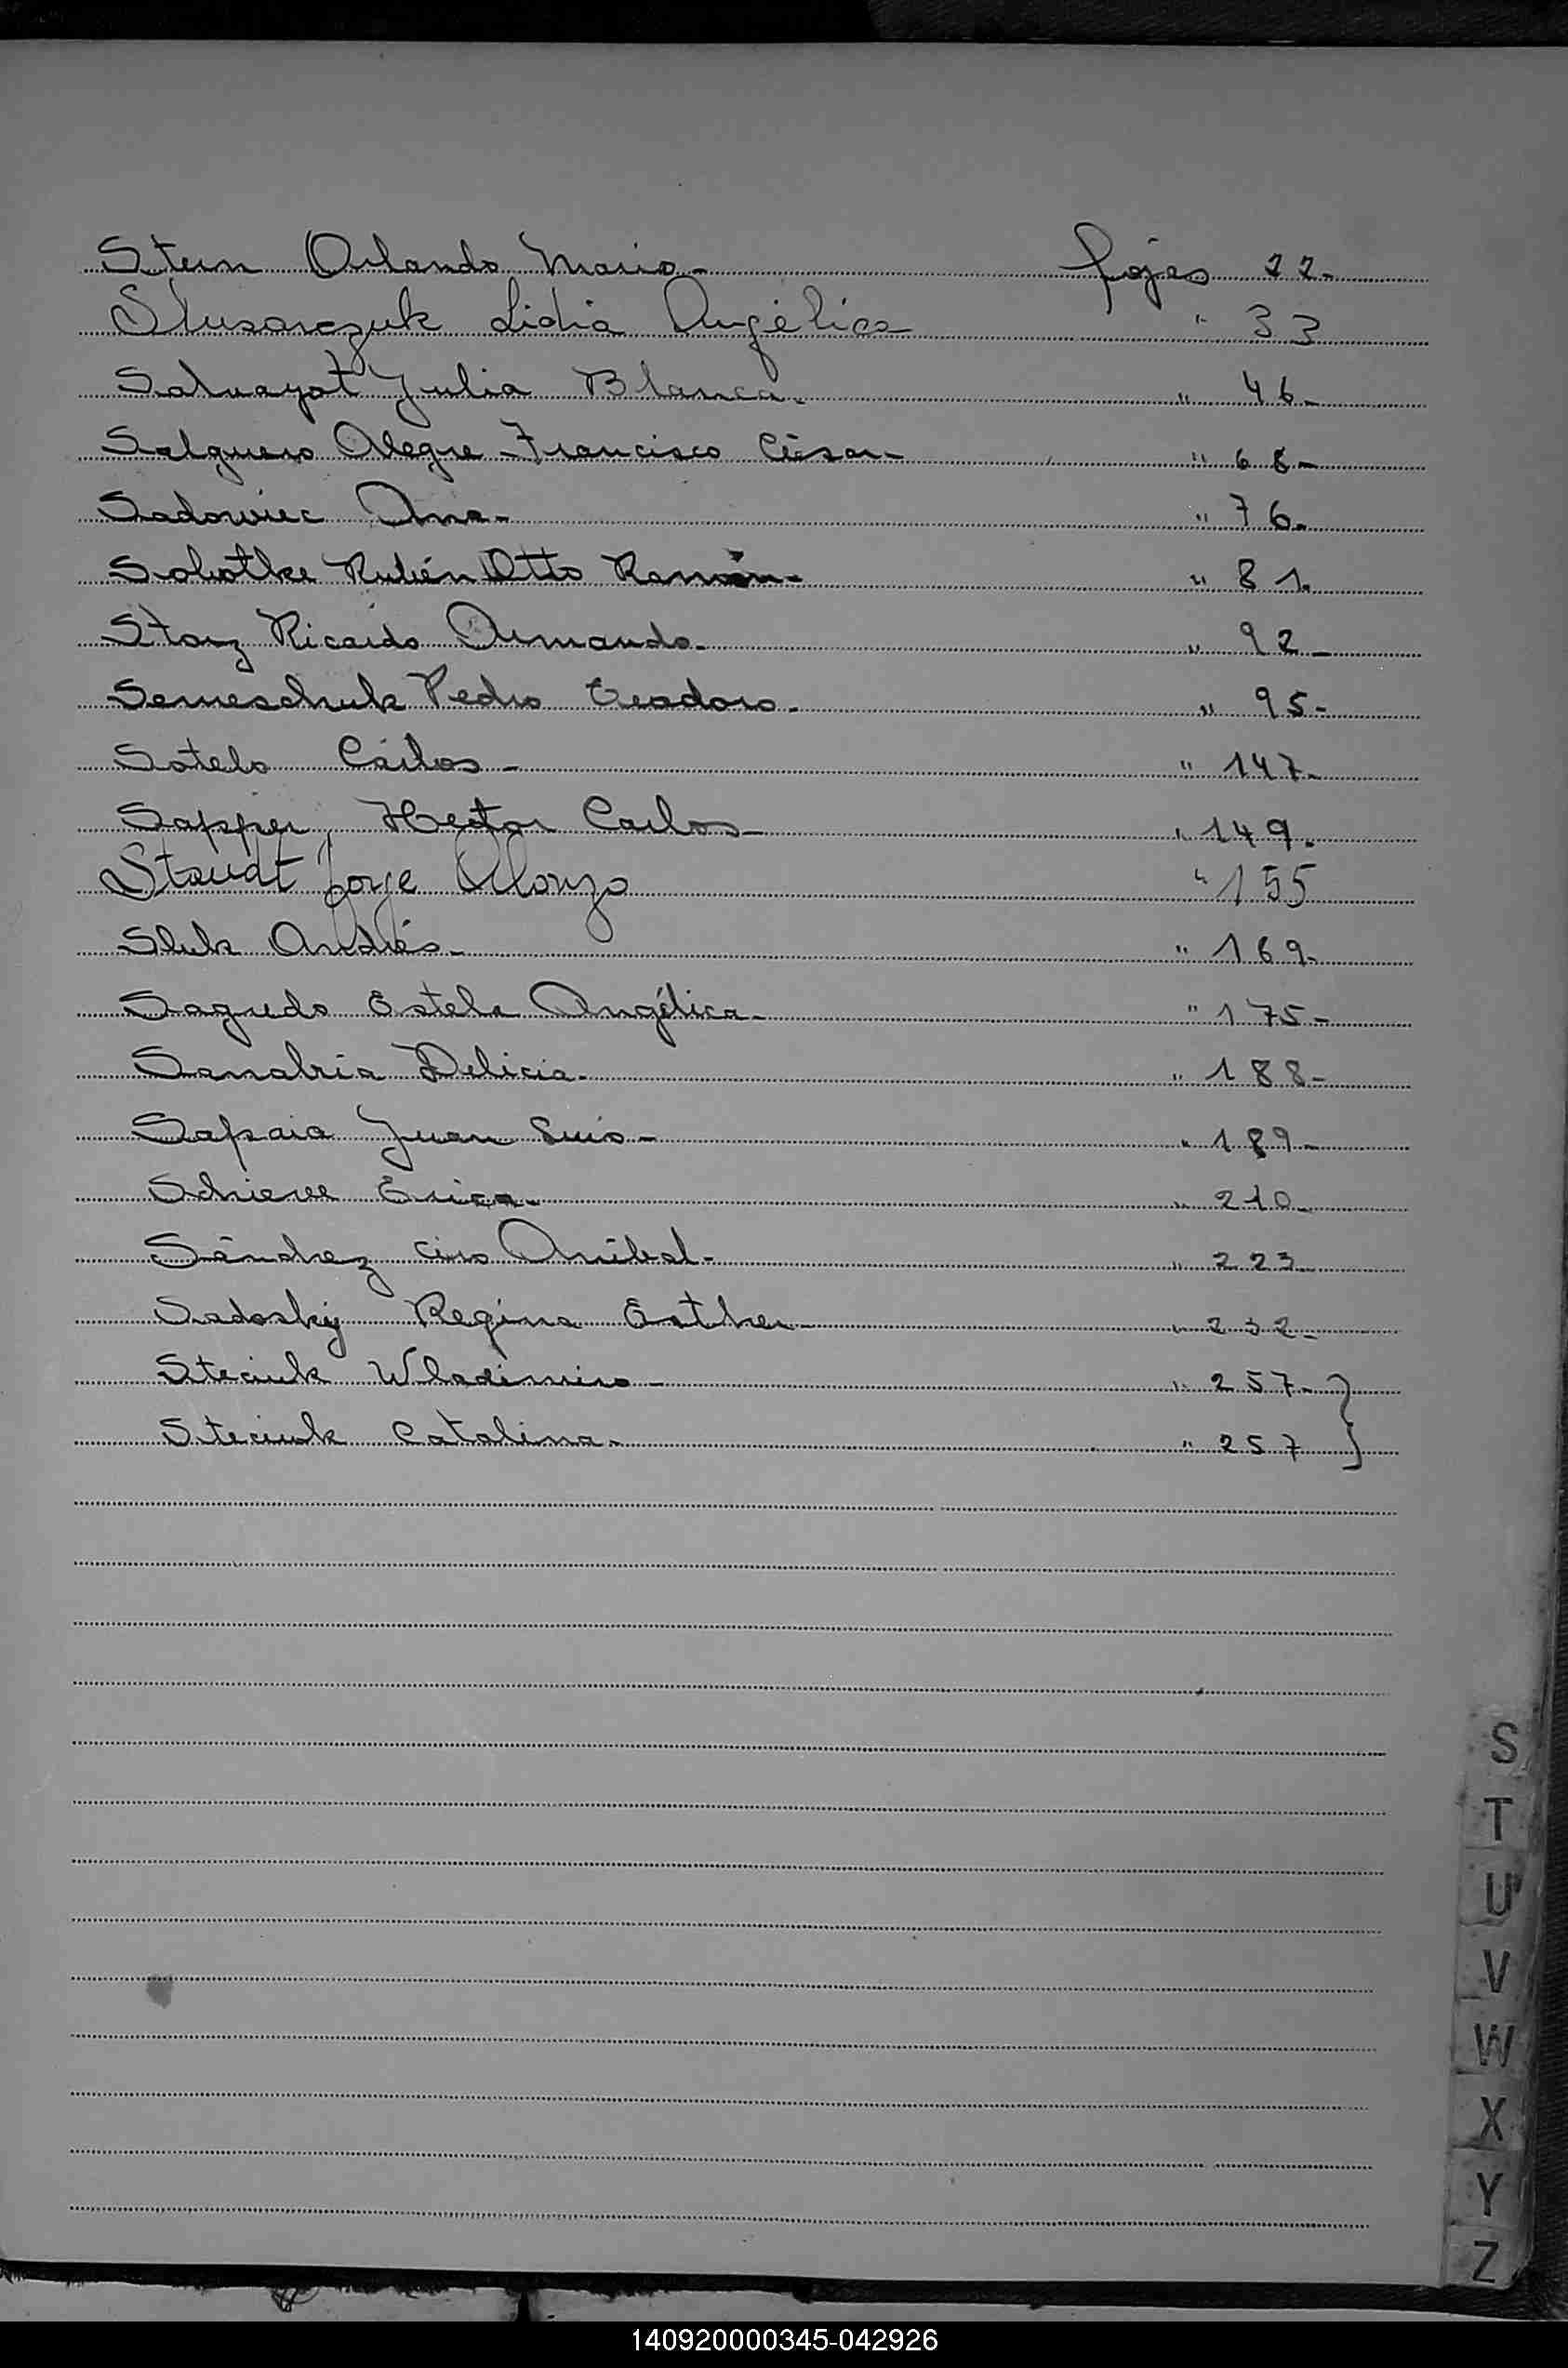 Stern Orlando Mario.- fojas 22.-
Slusarczuk Lidia Angélica " 33
Salvayot Julia Blanca.- " 46.-
Salguero Alegre Francisco César.- " 68.-
Sadowiec Ana.- " 76.-
Sobotke Rubén Otto Ramón.- " 81.
Storz Ricardo Armando.- " 92.-
Semeschuk Pedro Teodoro.- " 95.-
Sotelo Carlos.- " 147.-
Sapper, Hector Carlos.- " 149.
Staudt Jorge Alonzo " 155
Sluk Andrés.- " 169.-
Sagredo Estela Angélica.- " 175.-
Sanabria Delicia.- " 188.-
Sapaia Juan Luis.- " 189.-
Schieve Erica.- " 210.-
Sánchez Ciro Aníbal.- " 223.-
Sadosky Regina Esther.- " 232.-
Steciuk Wladimiro.- " 257.- }
Steciuk Catalina.- " 257 }
S
T
U
V
W
X
Y
Z
140920000345-042926